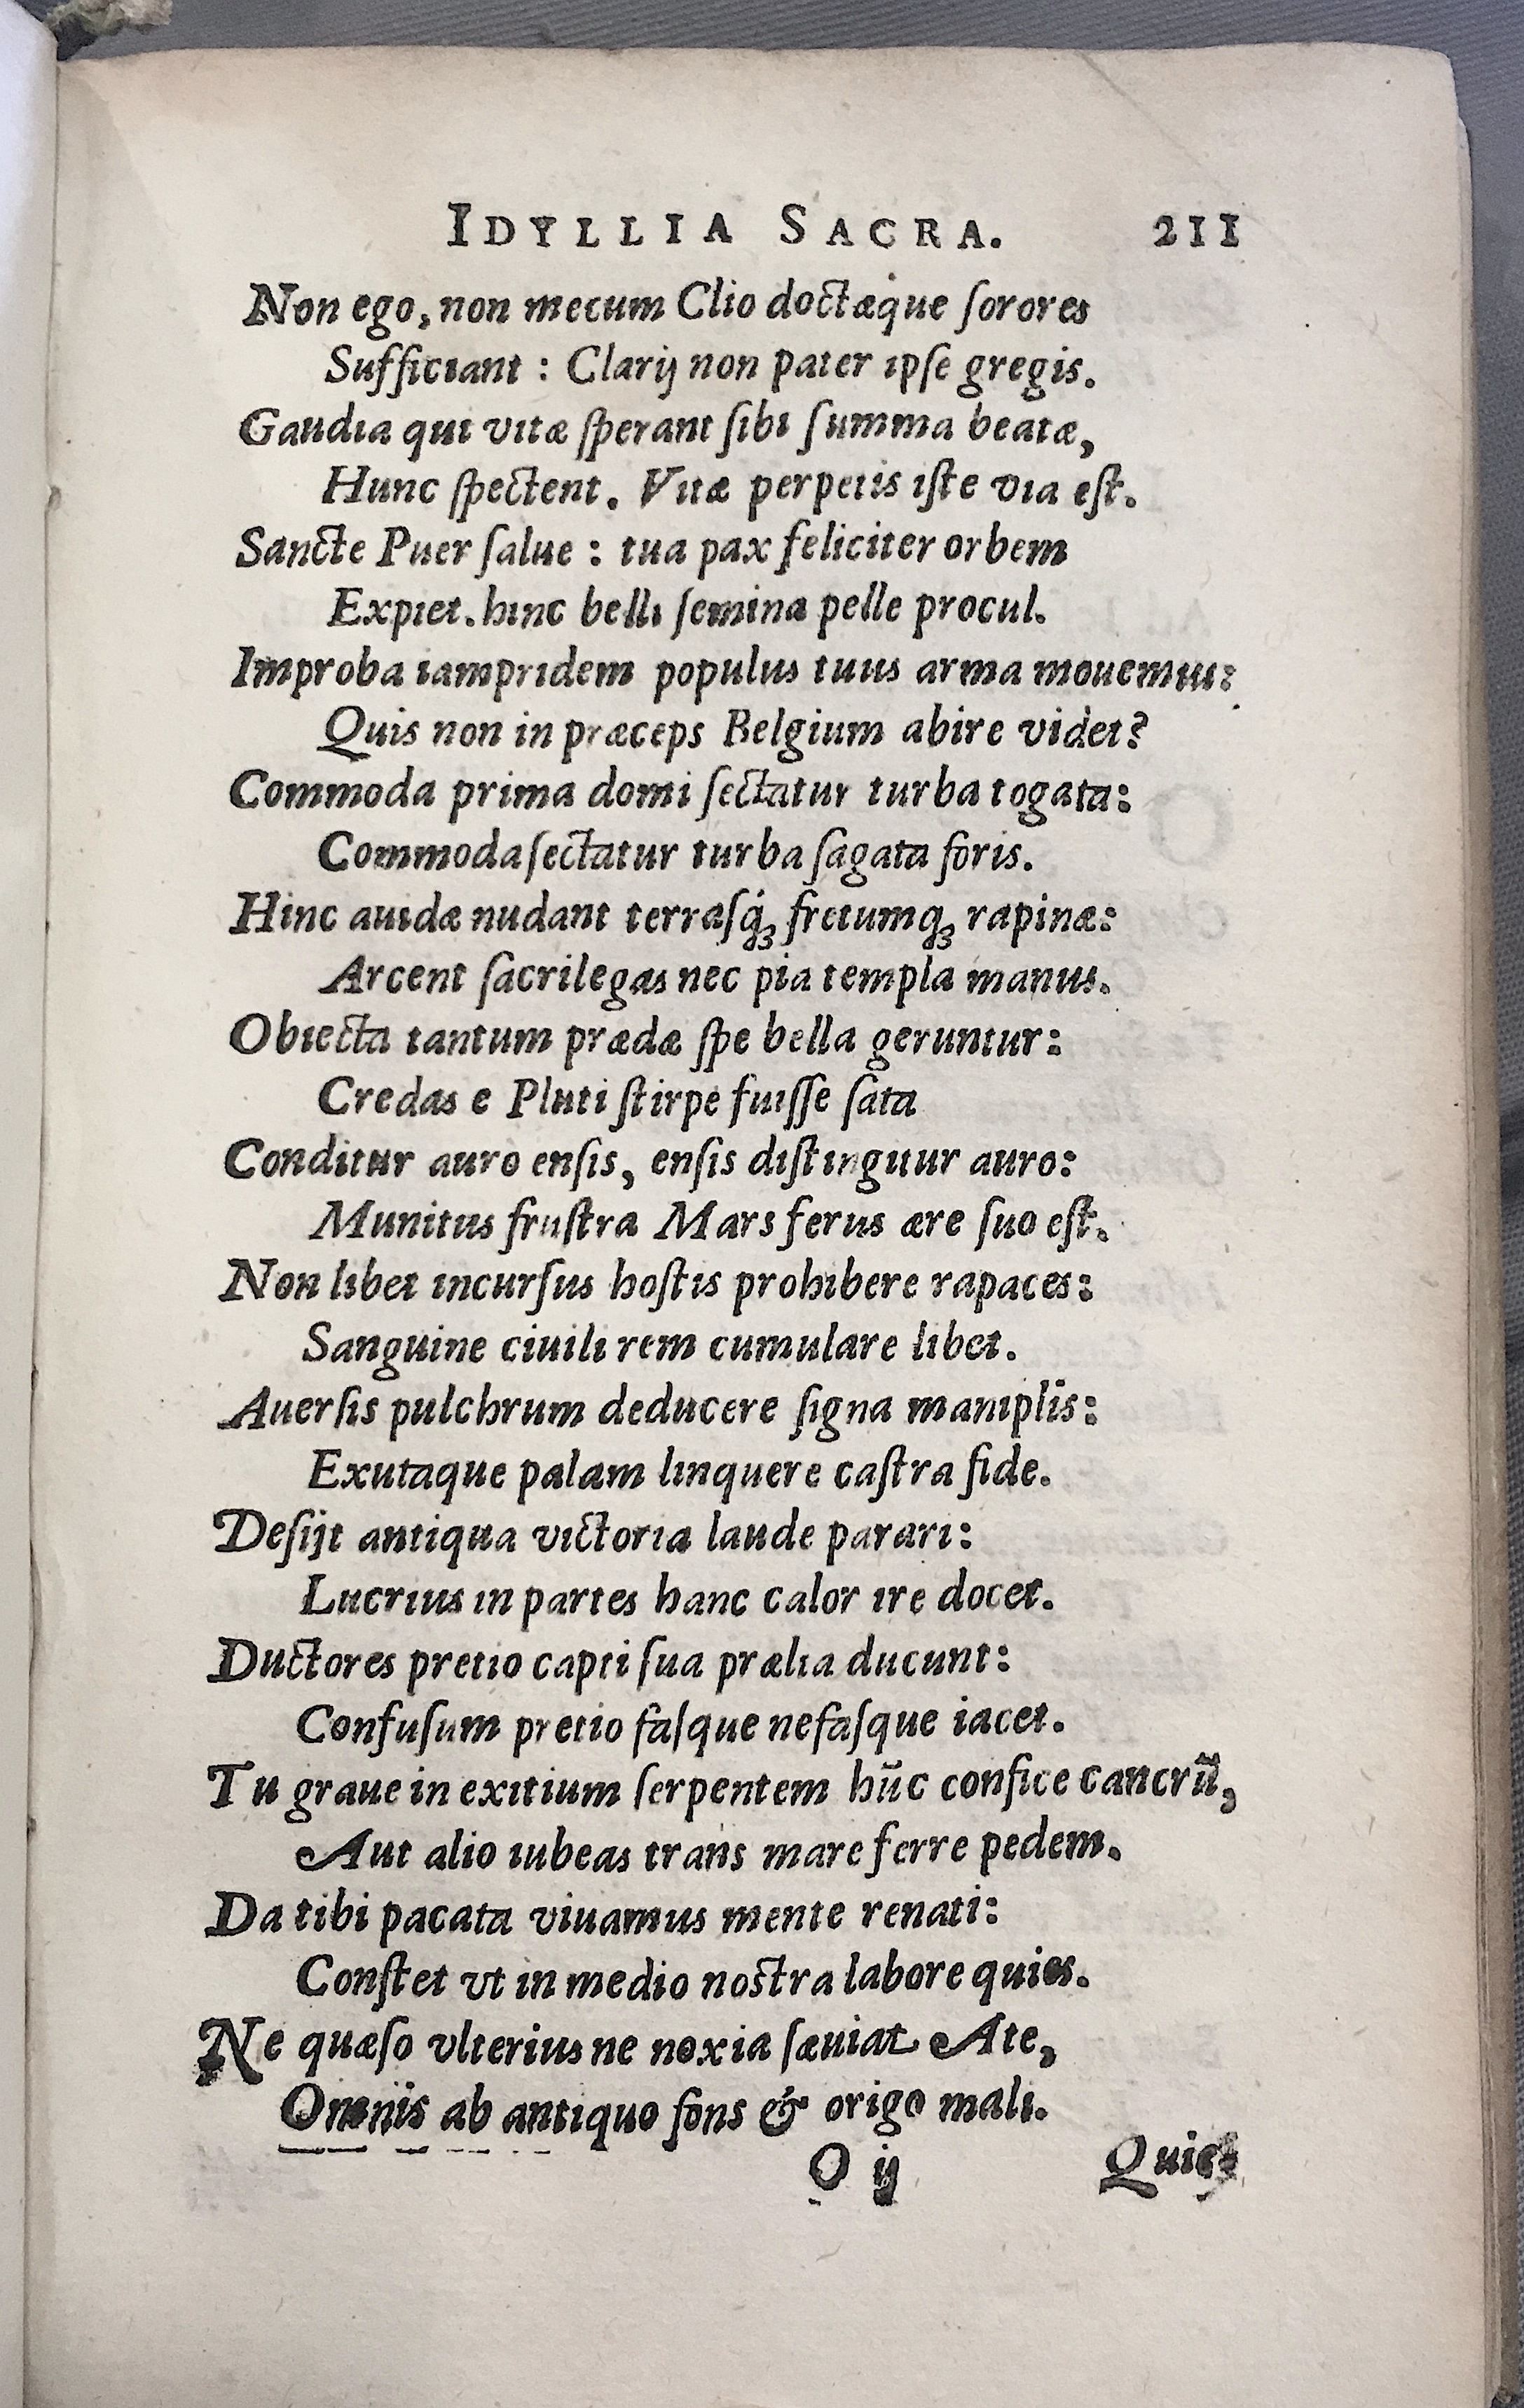 IDYLLIA SACRA. 211
Non ego, non mecum Clio doctæque ſorores
Sufficiant : Clarij non pater ipſe gregis.
Gaudia qui vitæ ſperant ſibi ſumma beatæ,
Hunc ſpectent. Vitæ perpetis iſte via eſt.
Sancte Puer ſalue : tua pax feliciter orbem
Expiet. hinc belli ſemina pelle procul.
Improba iampridem populus tuus arma mouemus:
Quis non in præceps Belgium abire videt?
Commoda prima domi ſectatur turba togata:
Commoda ſectatur turba ſagata foris.
Hinc auidæ nudant terraſq́ꝫ fretumqꝫ rapinæ:
Arcent ſacrilegas nec pia templa manus.
Obiecta tantum prædæ ſpe bella geruntur:
Credas e Pluti ſtirpe fuiſſe ſata
Conditur auro enſis, enſis diſtinguitur auro:
Munitus fruſtra Mars ferus ære ſuo eſt.
Non libet incurſus hoſtis prohibere rapaces:
Sanguine ciuili rem cumulare libet.
Auerſis pulchrum deducere ſigna maniplis:
Exutaque palam linquere caſtra fide.
Deſijt antiqua victoria laude parari:
Lucrius in partes hanc calor ire docet.
Ductores pretio capti ſua prælia ducunt:
Confuſum pretio faſque nefaſque iacet.
Tu graue in exitium ſerpentem hũc confice cancrũ,
Aut alio iubeas trans mare ferre pedem.
Da tibi pacata viuamus mente renati:
Conſtet vt in medio noſtra labore quies.
Ne quæſo vlterius ne noxia ſæuiat Ate,
Omnis ab antiquo fons & origo mali.
O ij